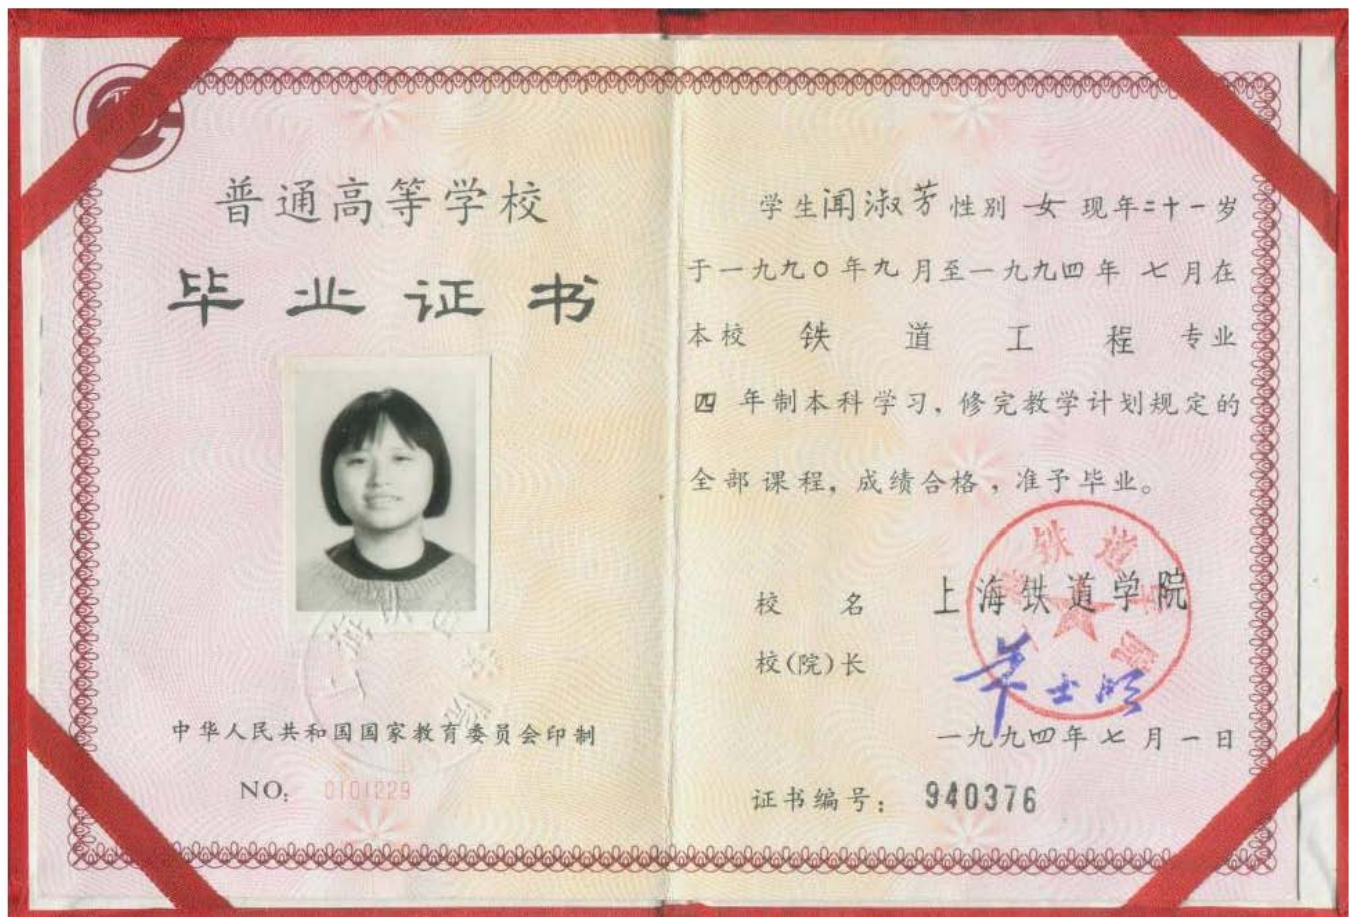 普通高等学校
毕业证书
中华人民共和国国家教育委员会印制
NO: 0101229
学生闻淑芳性别女现年二十一岁
于一九九〇年九月至一九九四年七月在
本校 铁道工程 专业
四年制本科学习，修完教学计划规定的
全部课程，成绩合格，准予毕业。
校名 上海铁道学院
校(院)长
一九九四年七月一日
证书编号：940376
上海铁道学院
上海铁道学院